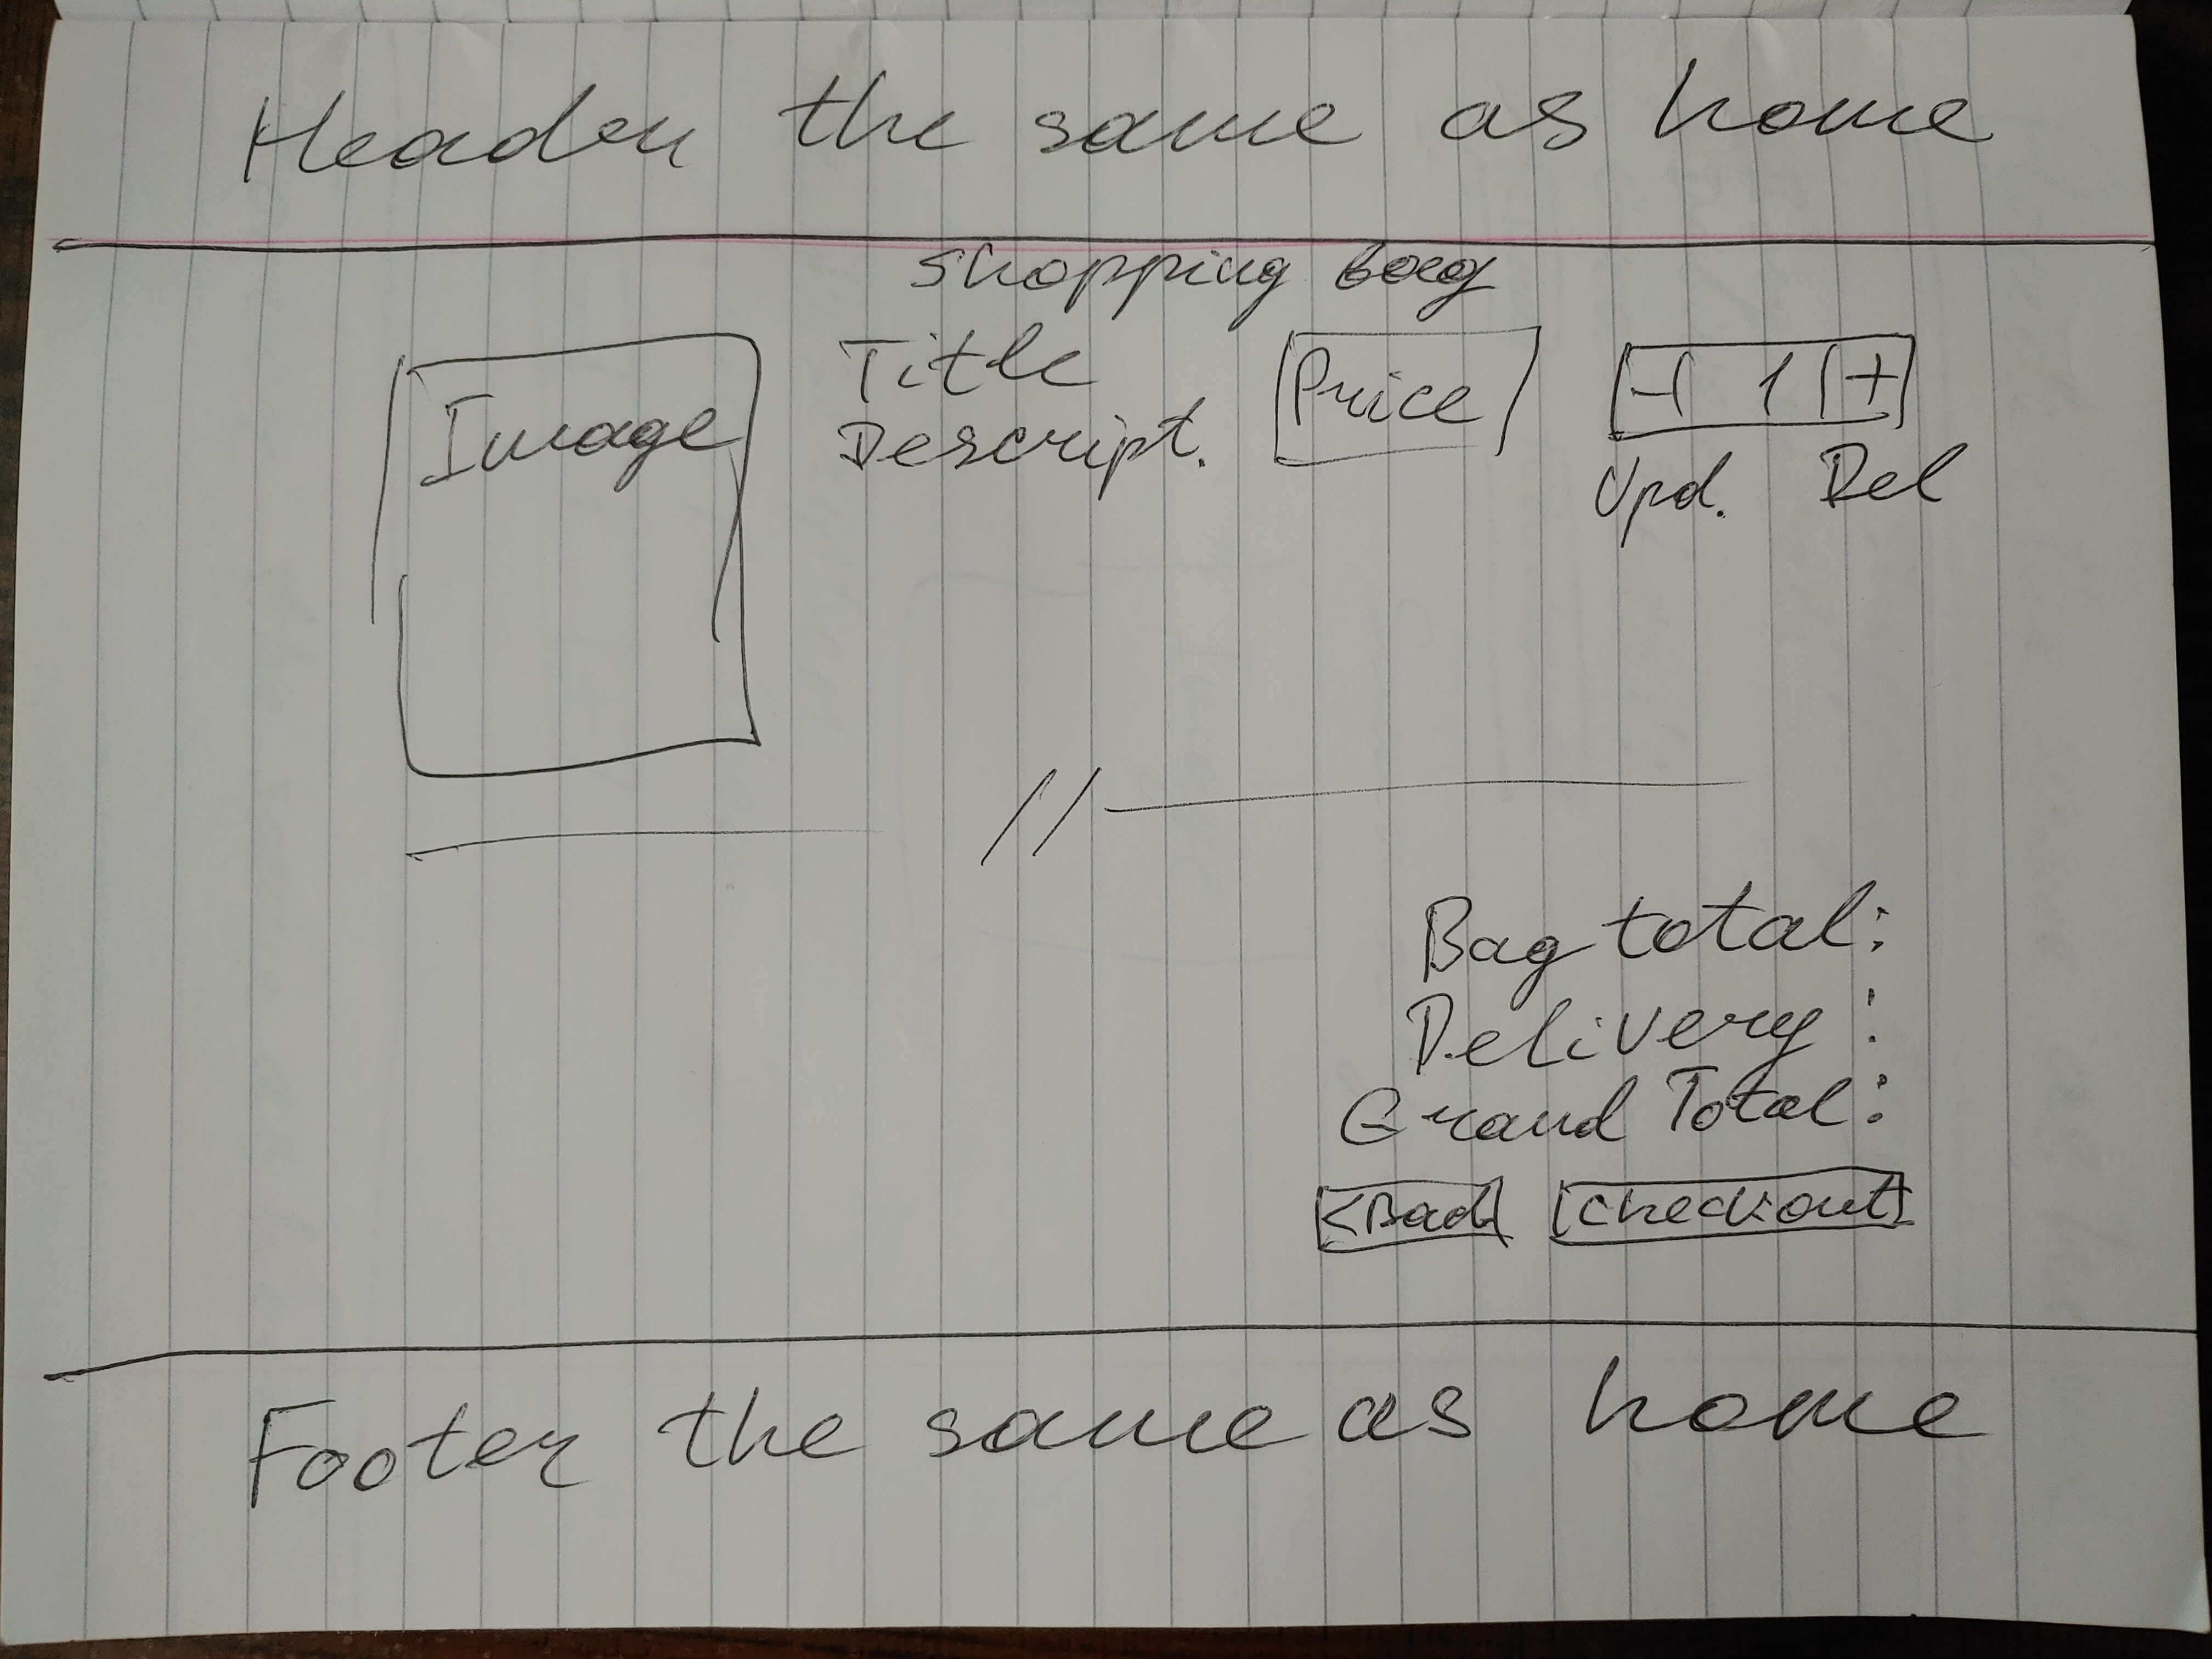 Header the same as home
Shopping bag
Image
Title
Descript.
Price
- 1 +
Upd. Del
//
Bag total:
Delivery :
Grand Total:
<Back Checkout
Footer the same as home